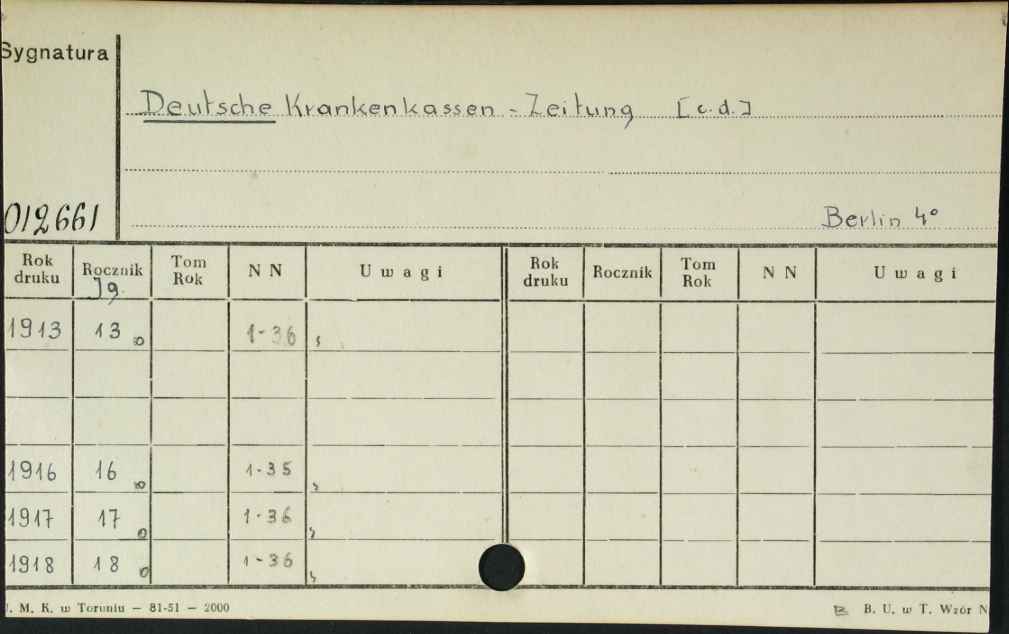 Sygnatura
Deutsche Krankenkassen - Zeitung [c.d.]
012661
Berlin 4°
Rok druku Rocznik Jg. Tom Rok N N Uwagi Rok druku Rocznik Tom Rok N N Uwagi
1913 13 1-36
1916 16 1-35
1917 17 1-36
1918 18 1-36
. M. K. w Toruniu — 81-51 — 2000
B. U. w T. Wzór N